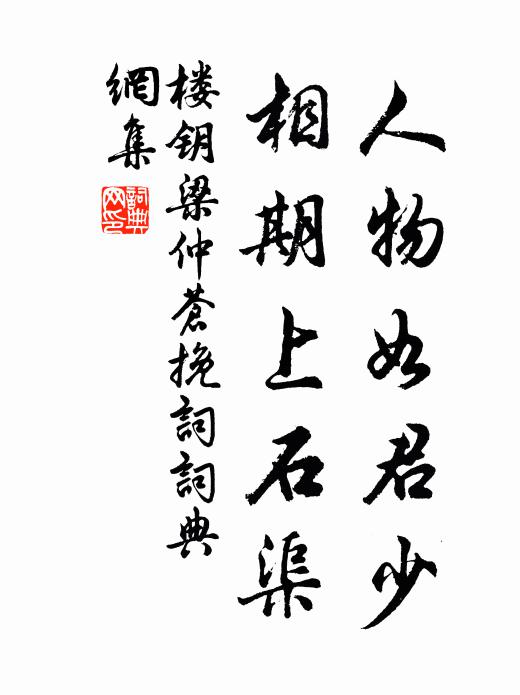 人物如君少
相期上石渠
楼钥梁仲苍挽詞詞典
網集
詞典
网印